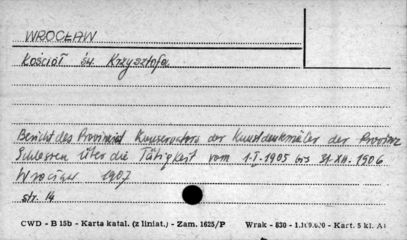 WROCŁAW
Kościół św. Krzysztofa
Bericht des Provinzial Konservators der Kunstdenkmäler der Provinz
Schlesien über die Tätigkeit vom 1.I.1905 bis 31.XII.1906
Wrocław 1907
str. 14
CWD - B 15b - Karta katal. (z liniat.) - Zam. 1625/P Wrak - 630 - - Kart. 5 kl. A1